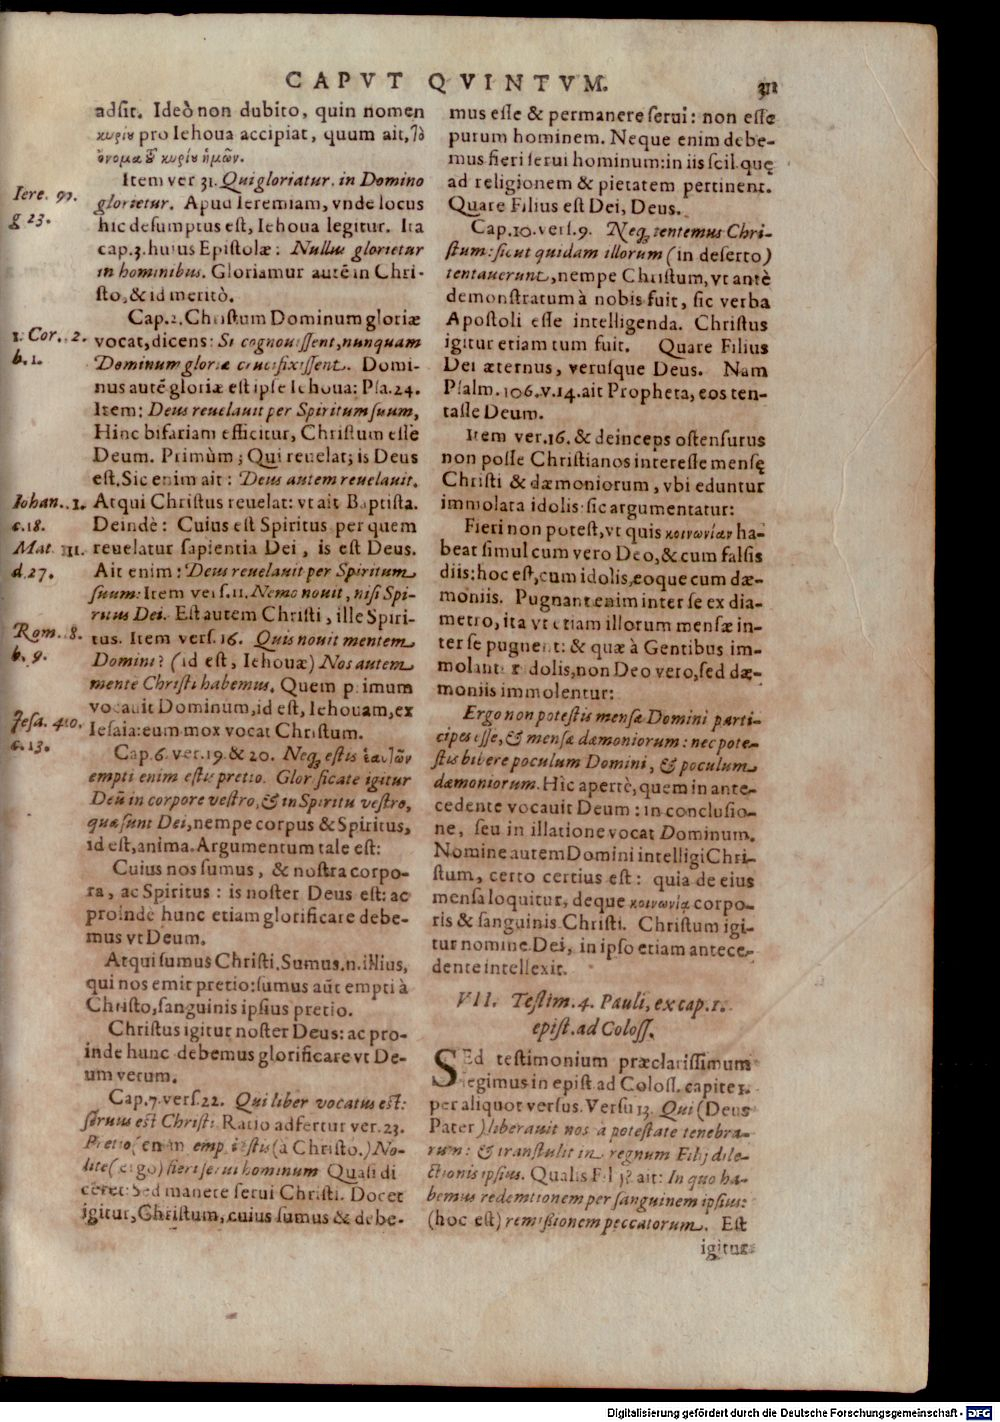 CAPVT QVINTVM. 311
adsit. Ideò non dubito, quin nomen
κυρίου pro Iehoua accipiat, quum ait, Τὸ
ὄνομα τοῦ κυρίου ἡμῶν.
Item ver 31. Qui gloriatur, in Domino
glorietur. Apud Ieremiam, vnde locus
hic desumptus est, Iehoua legitur. Ita
cap. 3. huius Epistolæ: Nullus glorietur
in hominibus. Gloriamur autē in Chri-
sto, & id meritò.
Cap. 2. Christum Dominum gloriæ
vocat, dicens: Si cognouissent, nunquam
Dominum gloriæ crucifixissent. Domi-
nus autē gloriæ est ipse Iehoua: Psa. 24.
Item: Deus reuelauit per Spiritum suum,
Hinc bifariam efficitur, Christum esse
Deum. Primùm; Qui reuelat; is Deus
est. Sic enim ait: Deus autem reuelauit.
Atqui Christus reuelat: vt ait Baptista.
Deindè: Cuius est Spiritus per quem
reuelatur sapientia Dei, is est Deus.
Ait enim: Deus reuelauit per Spiritum
suum: Item vers. 11. Nemo nouit, nisi Spi-
ritus Dei. Est autem Christi, ille Spiri-
tus. Item vers. 16. Quis nouit mentem
Domini? (id est, Iehouæ) Nos autem
mentē Christi habemus. Quem primum
vocauit Dominum, id est, Iehouam, ex
Iesaia: eum mox vocat Christum.
Cap. 6. ver. 19. & 20. Neq; estis ἑαυτῶν
empti enim estis pretio. Glorificate igitur
Deū in corpore vestro, & in Spiritu vestro,
quæ sunt Dei, nempe corpus & Spiritus,
id est, anima. Argumentum tale est:
Cuius nos sumus, & nostra corpo-
ra, ac Spiritus: is noster Deus est: ac
proindè hunc etiam glorificare debe-
mus vt Deum.
Atqui sumus Christi. Sumus. n. illius,
qui nos emit pretio: sumus aūt empti à
Christo, sanguinis ipsius pretio.
Christus igitur noster Deus: ac pro-
inde hunc debemus glorificare vt De-
um verum.
Cap. 7. vers. 22. Qui liber vocatus est:
seruus est Christi. Ratio adfertur ver. 23.
Pretio (enim) empti estis (à Christo.) No-
lite (ergo) fieri serui hominum Quasi di
ceret Sed manete serui Christi. Docet
igitur, Christum, cuius sumus & debe-
Iere. 9.
g 23.
1. Cor. 2.
b. 1.
Iohan. 1.
c. 18.
Mat. 11.
d. 27.
Rom. 8.
b. 9.
Jesa. 40.
c. 13.
mus esse & permanere serui: non esse
purum hominem. Neque enim debe-
mus fieri serui hominum: in iis scil. quę
ad religionem & pietatem pertinent.
Quare Filius est Dei, Deus.
Cap. 10. vers. 9. Neq; tentemus Chri-
stum: sicut quidam illorum (in deserto)
tentauerunt, nempe Christum, vt antè
demonstratum à nobis fuit, sic verba
Apostoli esse intelligenda. Christus
igitur etiam tum fuit. Quare Filius
Dei æternus, verusque Deus. Nam
Psalm. 106. v. 14. ait Propheta, eos ten-
tasse Deum.
Item ver. 16. & deinceps ostensurus
non posse Christianos interesse mensę
Christi & dæmoniorum, vbi eduntur
immolata idolis sic argumentatur:
Fieri non potest, vt quis κοινωνίαν ha-
beat simul cum vero Deo, & cum falsis
diis: hoc est, cum idolis, eoque cum dæ-
moniis. Pugnant enim inter se ex dia-
metro, ita vt etiam illorum mensæ in-
ter se pugnent: & quæ à Gentibus im-
molantur idolis, non Deo vero, sed dæ-
moniis immolentur:
Ergo non potestis mensæ Domini parti-
cipes esse, & mensæ dæmoniorum: nec pote-
stis bibere poculum Domini, & poculum
dæmoniorum. Hic apertè, quem in ante-
cedente vocauit Deum: in conclusio-
ne, seu in illatione vocat Dominum.
Nomine autem Domini intelligi Chri-
stum, certo certius est: quia de eius
mensa loquitur, deque κοινωνία corpo-
ris & sanguinis Christi. Christum igi-
tur nomine Dei, in ipso etiam antece-
dente intellexit.
VII. Testim. 4. Pauli, ex cap. 1.
epist. ad Coloss.
SEd testimonium præclarissimum
legimus in epist. ad Coloss. capite 1.
per aliquot versus. Versu 13. Qui (Deus
Pater) liberauit nos à potestate tenebra-
rum: & transtulit in regnum Filij dile-
ctionis ipsius. Qualis Filij? ait: In quo ha-
bemus redemtionem per sanguinem ipsius:
(hoc est) remissionem peccatorum. Est
igitur
Digitalisierung gefördert durch die Deutsche Forschungsgemeinschaft - DFG